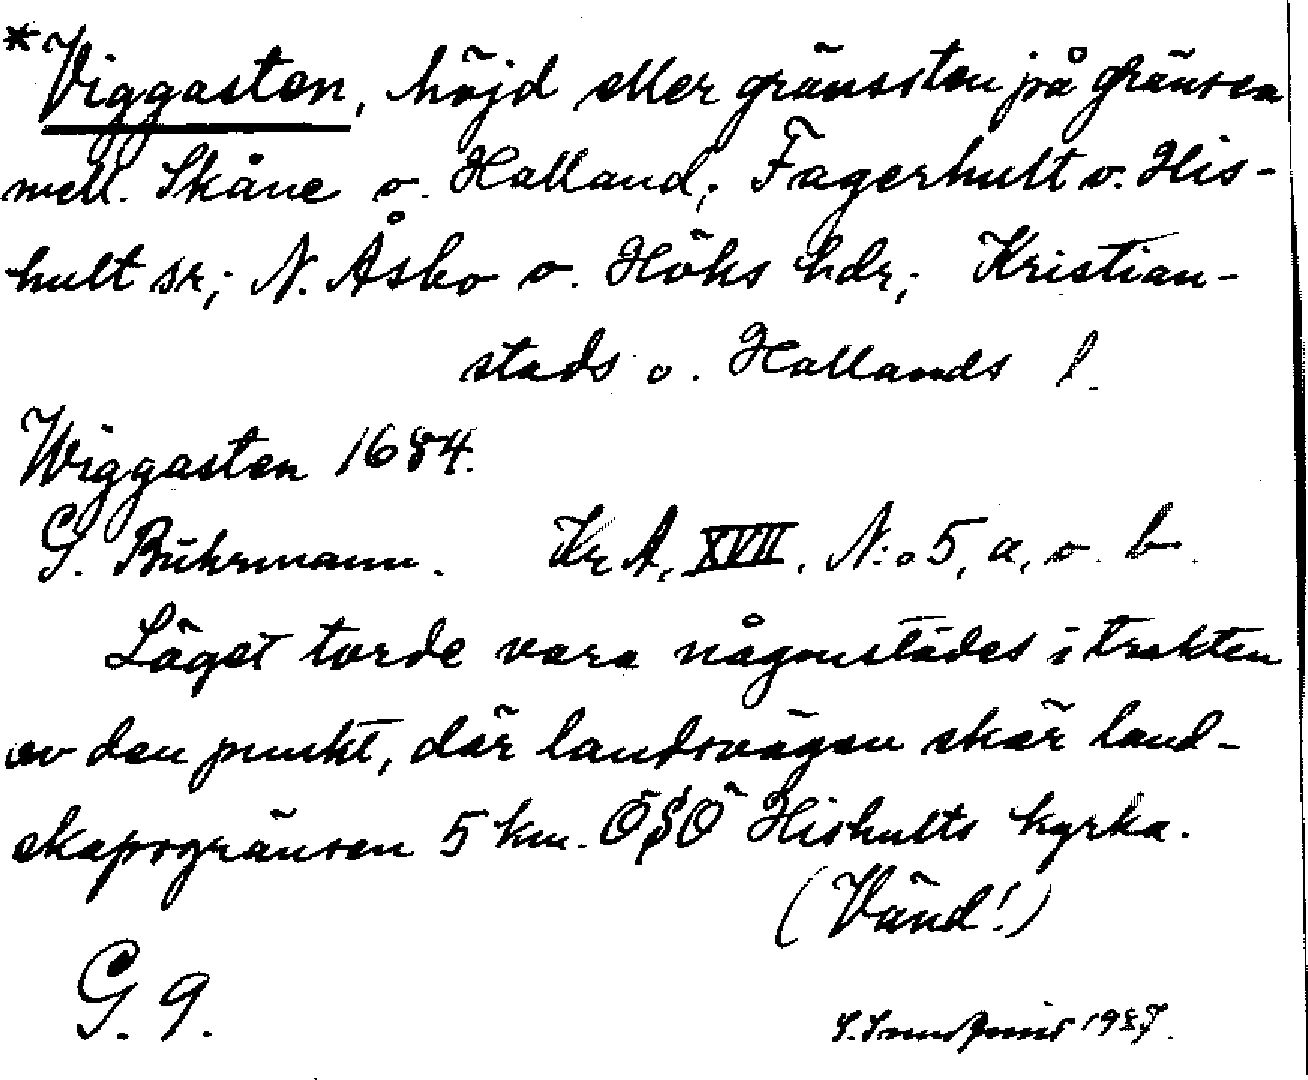 *Viggasten, höjd eller gränssten på gränsen
mell. Skåne o. Halland; Fagerhult o. His-
hult sr; N. Åsbo o. Höks hdr; Kristian-
stads o. Hallands l.
Wiggasten 1684.
G. Bührmann. Kr A, XVII, N:o 5, a, o. b.
Läget torde vara någonstädes i trakten
av den punkt, där landsvägen skär land-
skapsgränsen 5 km. ÖSÖ Hishults kyrka.
(Vänd!)
G. 9.